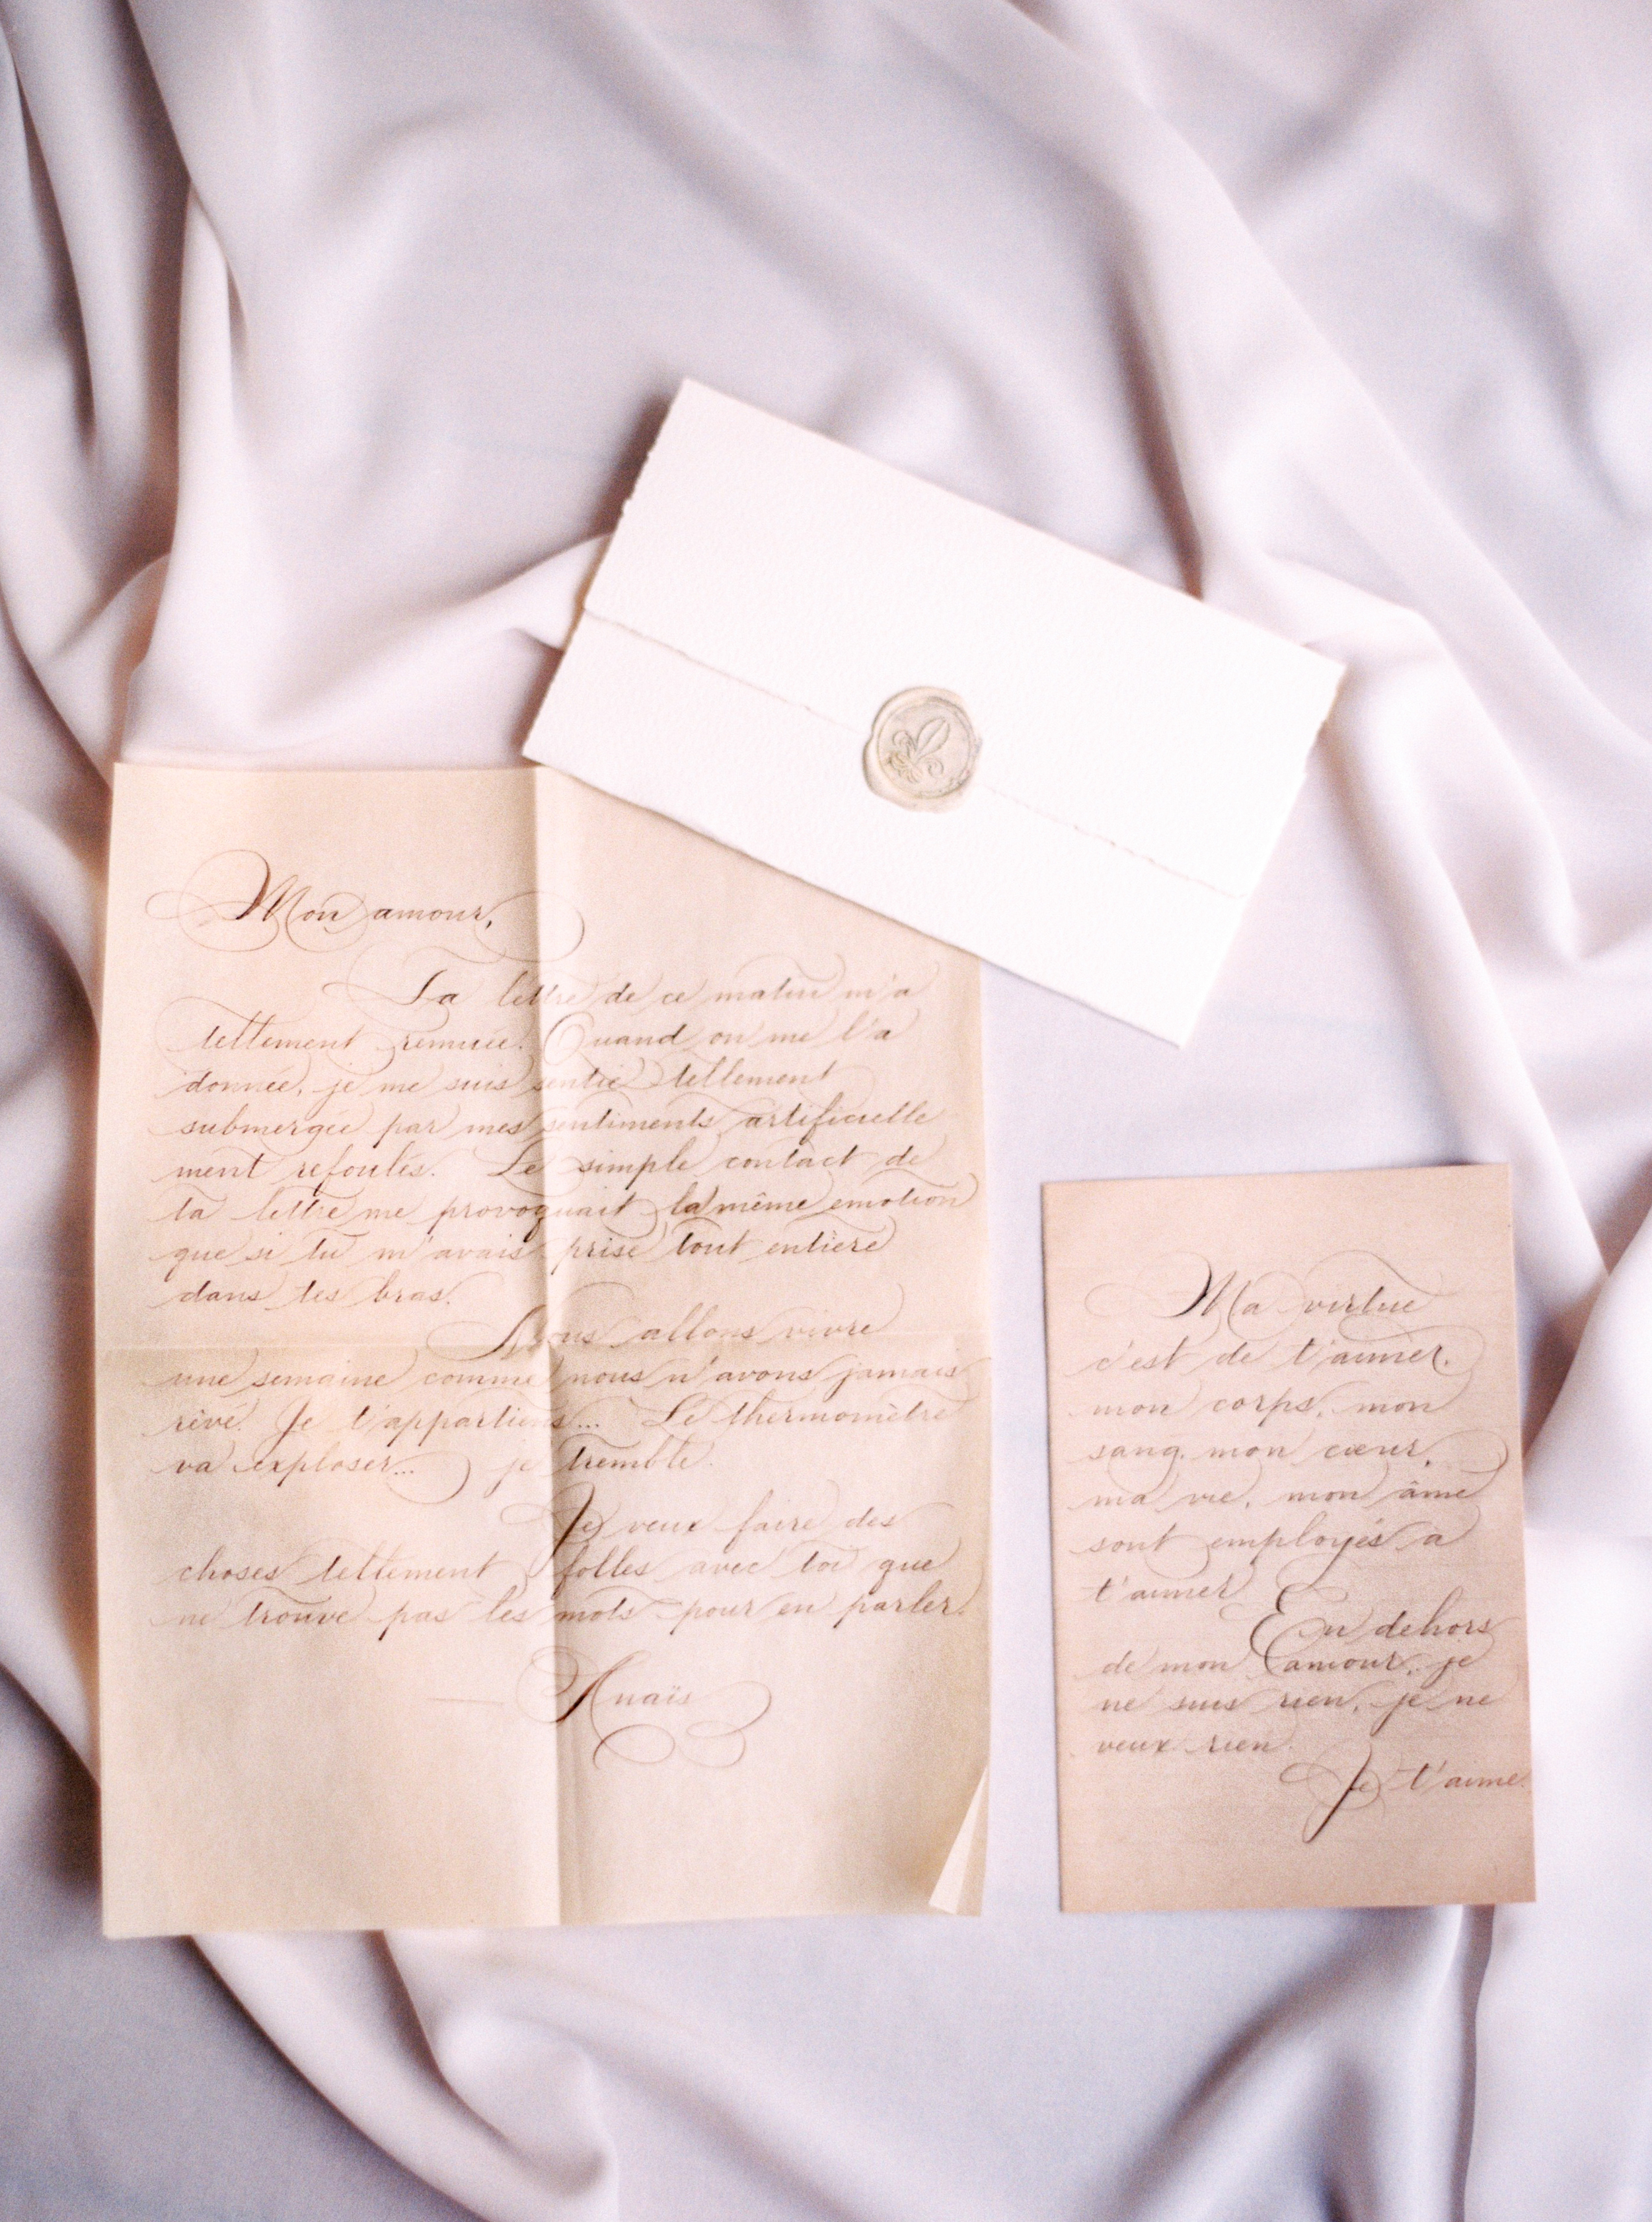 Mon amour,
La lettre de ce matin m'a
tellement remuée. Quand on me l'a
donnée, je me suis sentie tellement
submergée par mes sentiments artificielle
ment refoulés. Le simple contact de
ta lettre me provoquait la même emotion
que si tu m'avais prise tout entière
dans tes bras.
Nous allons vivre
une semaine comme nous n'avons jamais
rêvé. Je t'appartiens... Le thermomètre
va exploser... je tremble.
Je veux faire des
choses tellement folles avec toi que
ne trouve pas les mots pour en parler.
Anaïs
Ma vertue
c'est de t'aimer.
mon corps, mon
sang, mon cœur,
ma vie, mon âme
sont employés a
t'aimer
En dehors
de mon amour, je
ne suis rien, je ne
veux rien.
Je t'aime.